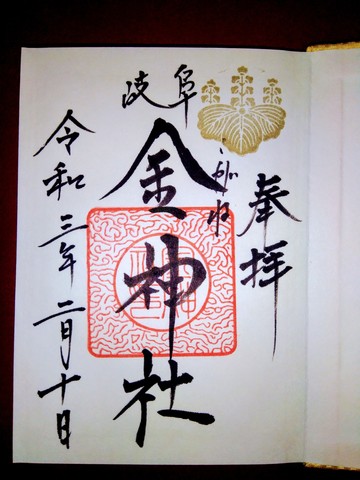 奉拝
岐阜
金神社
令和三年二月十日